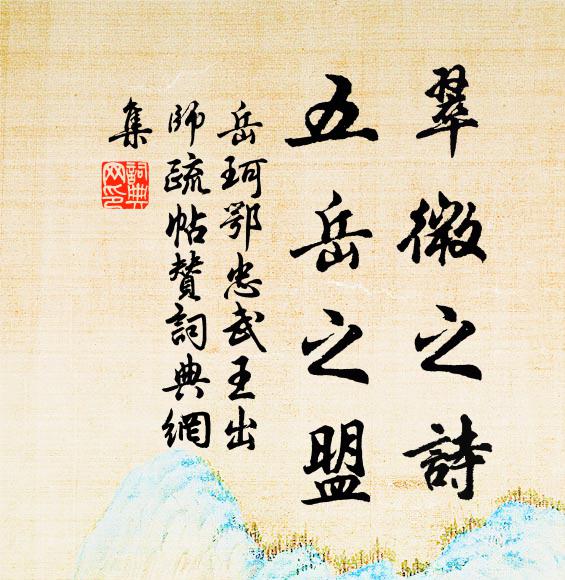 翠微之詩
五岳之盟
岳珂鄂忠武王出
師疏帖赞詞典網
集
詞典
网印